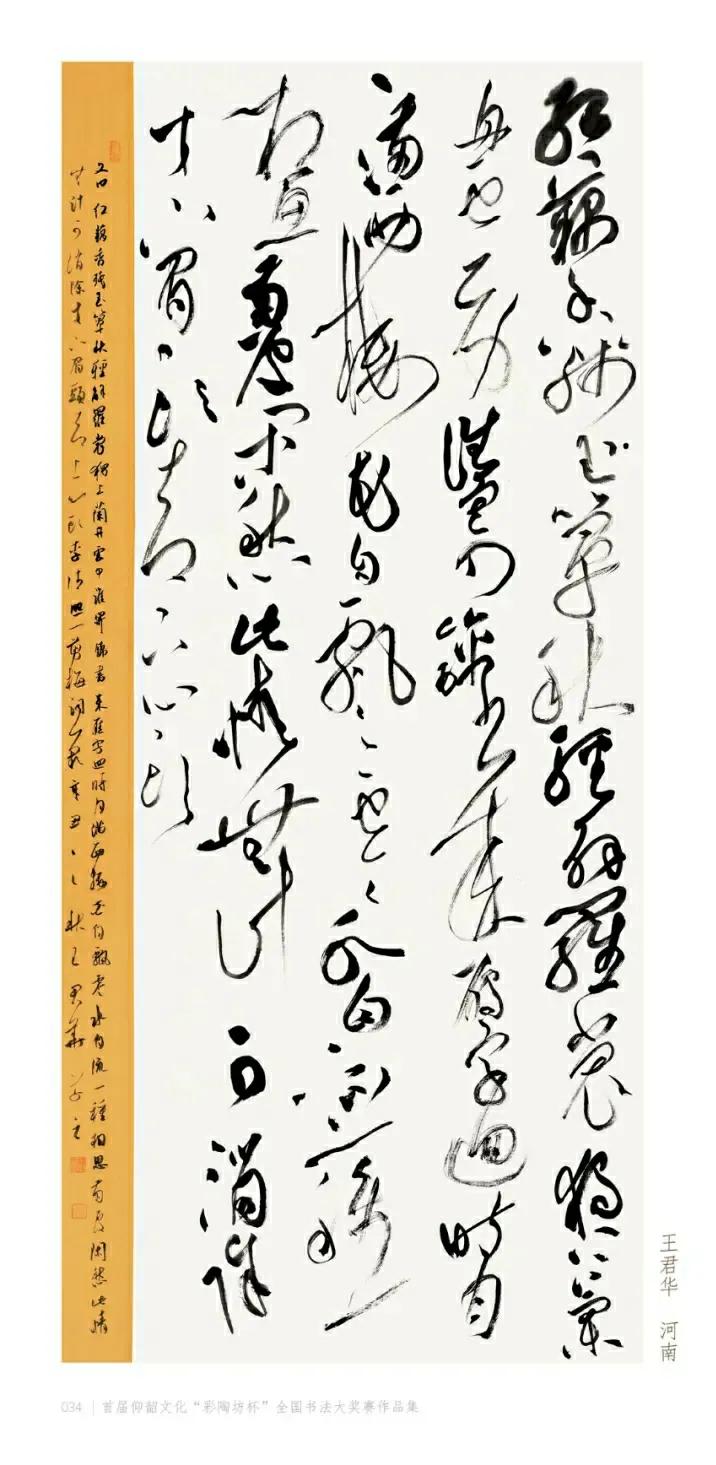 红藕香残玉簟秋轻解羅裳独上蘭
舟云中誰寄錦书来雁字迴時月
满西楼花自飘零水自流一種
相思兩處闲愁此情無計可消除
才下眉头却上心头
红藕香残玉簟秋轻解羅裳独上蘭舟雲中誰寄锦书来雁字迴時月满西楼花自飄零水自流一種相思兩處闲愁此情
無计可消除才下眉頭却上心头李清照一剪梅词辛丑之秋王君華
王君华 河南
034 | 首届仰韶文化“彩陶坊杯”全国书法大奖赛作品集